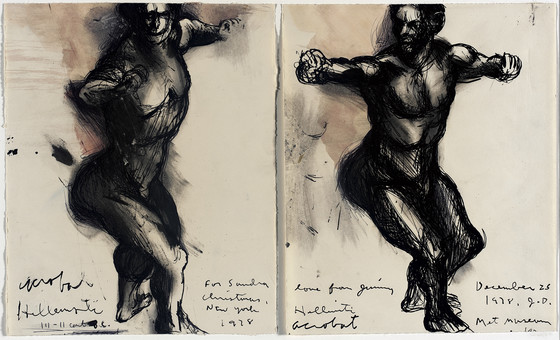 acrobat
Hellenistic
III-II cent. B.C.
For Sandra
Christmas,
New York
1978
love from
Hellenistic
acrobat
December 25
1978, J.D.
Met Museum